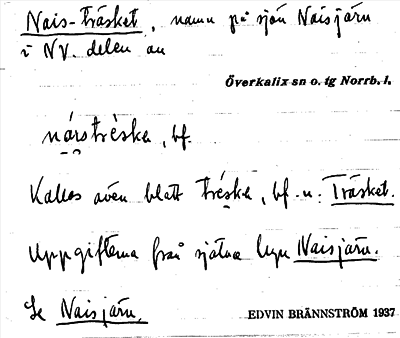 Nais-träsket, namn på sjön Naisjärv
i NV. delen av
Överkalix sn o. tg Norrb. l.
nárstrèska, bf.
Kallas även blott trèska, bf. n. Träsket.
Uppgifterna från sjätva byn Naisjärv.
Se Naisjärv.
EDVIN BRÄNNSTRÖM 1937